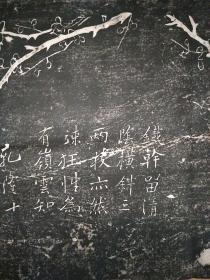 鐵幹留清
陰橫斜三
兩枝亦
疎狂性為
有嶺雲知
乾隆十